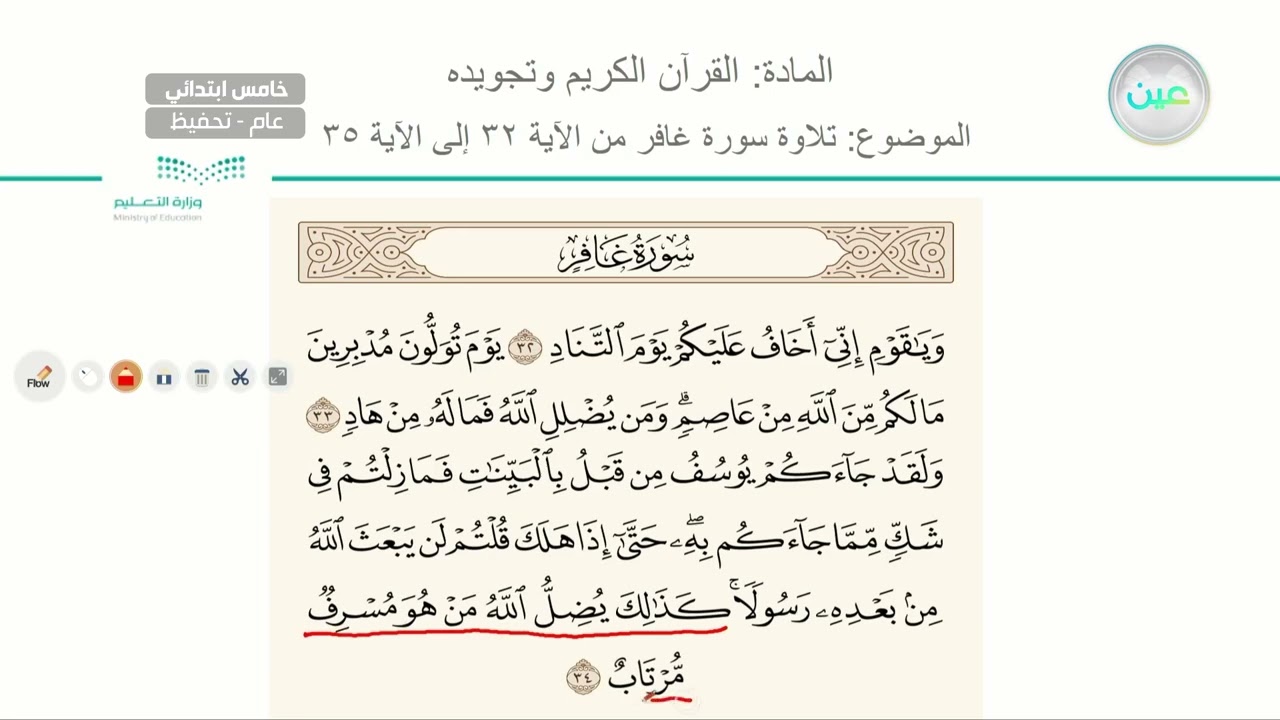 المادة: القرآن الكريم وتجويده
عين
خامس ابتدائي
عام - تحفيظ
الموضوع: تلاوة سورة غافر من الآية ٣٢ إلى الآية ٣٥
وزارة التعليم
Ministry of Education
سُورَةُ غَافِرٍ
وَيَٰقَوْمِ إِنِّيٓ أَخَافُ عَلَيْكُمْ يَوْمَ ٱلتَّنَادِ ٣٢ يَوْمَ تُوَلُّونَ مُدْبِرِينَ
مَا لَكُم مِّنَ ٱللَّهِ مِنْ عَاصِمٍۗ وَمَن يُضْلِلِ ٱللَّهُ فَمَا لَهُۥ مِنْ هَادٍ ٣٣
وَلَقَدْ جَآءَكُمْ يُوسُفُ مِن قَبْلُ بِٱلْبَيِّنَٰتِ فَمَا زِلْتُمْ فِي
شَكٍّ مِّمَّا جَآءَكُم بِهِۦۖ حَتَّىٰٓ إِذَا هَلَكَ قُلْتُمْ لَن يَبْعَثَ ٱللَّهُ
مِنۢ بَعْدِهِۦ رَسُولًاۚ كَذَٰلِكَ يُضِلُّ ٱللَّهُ مَنْ هُوَ مُسْرِفٌ
مُّرْتَابٌ ٣٤
Flow